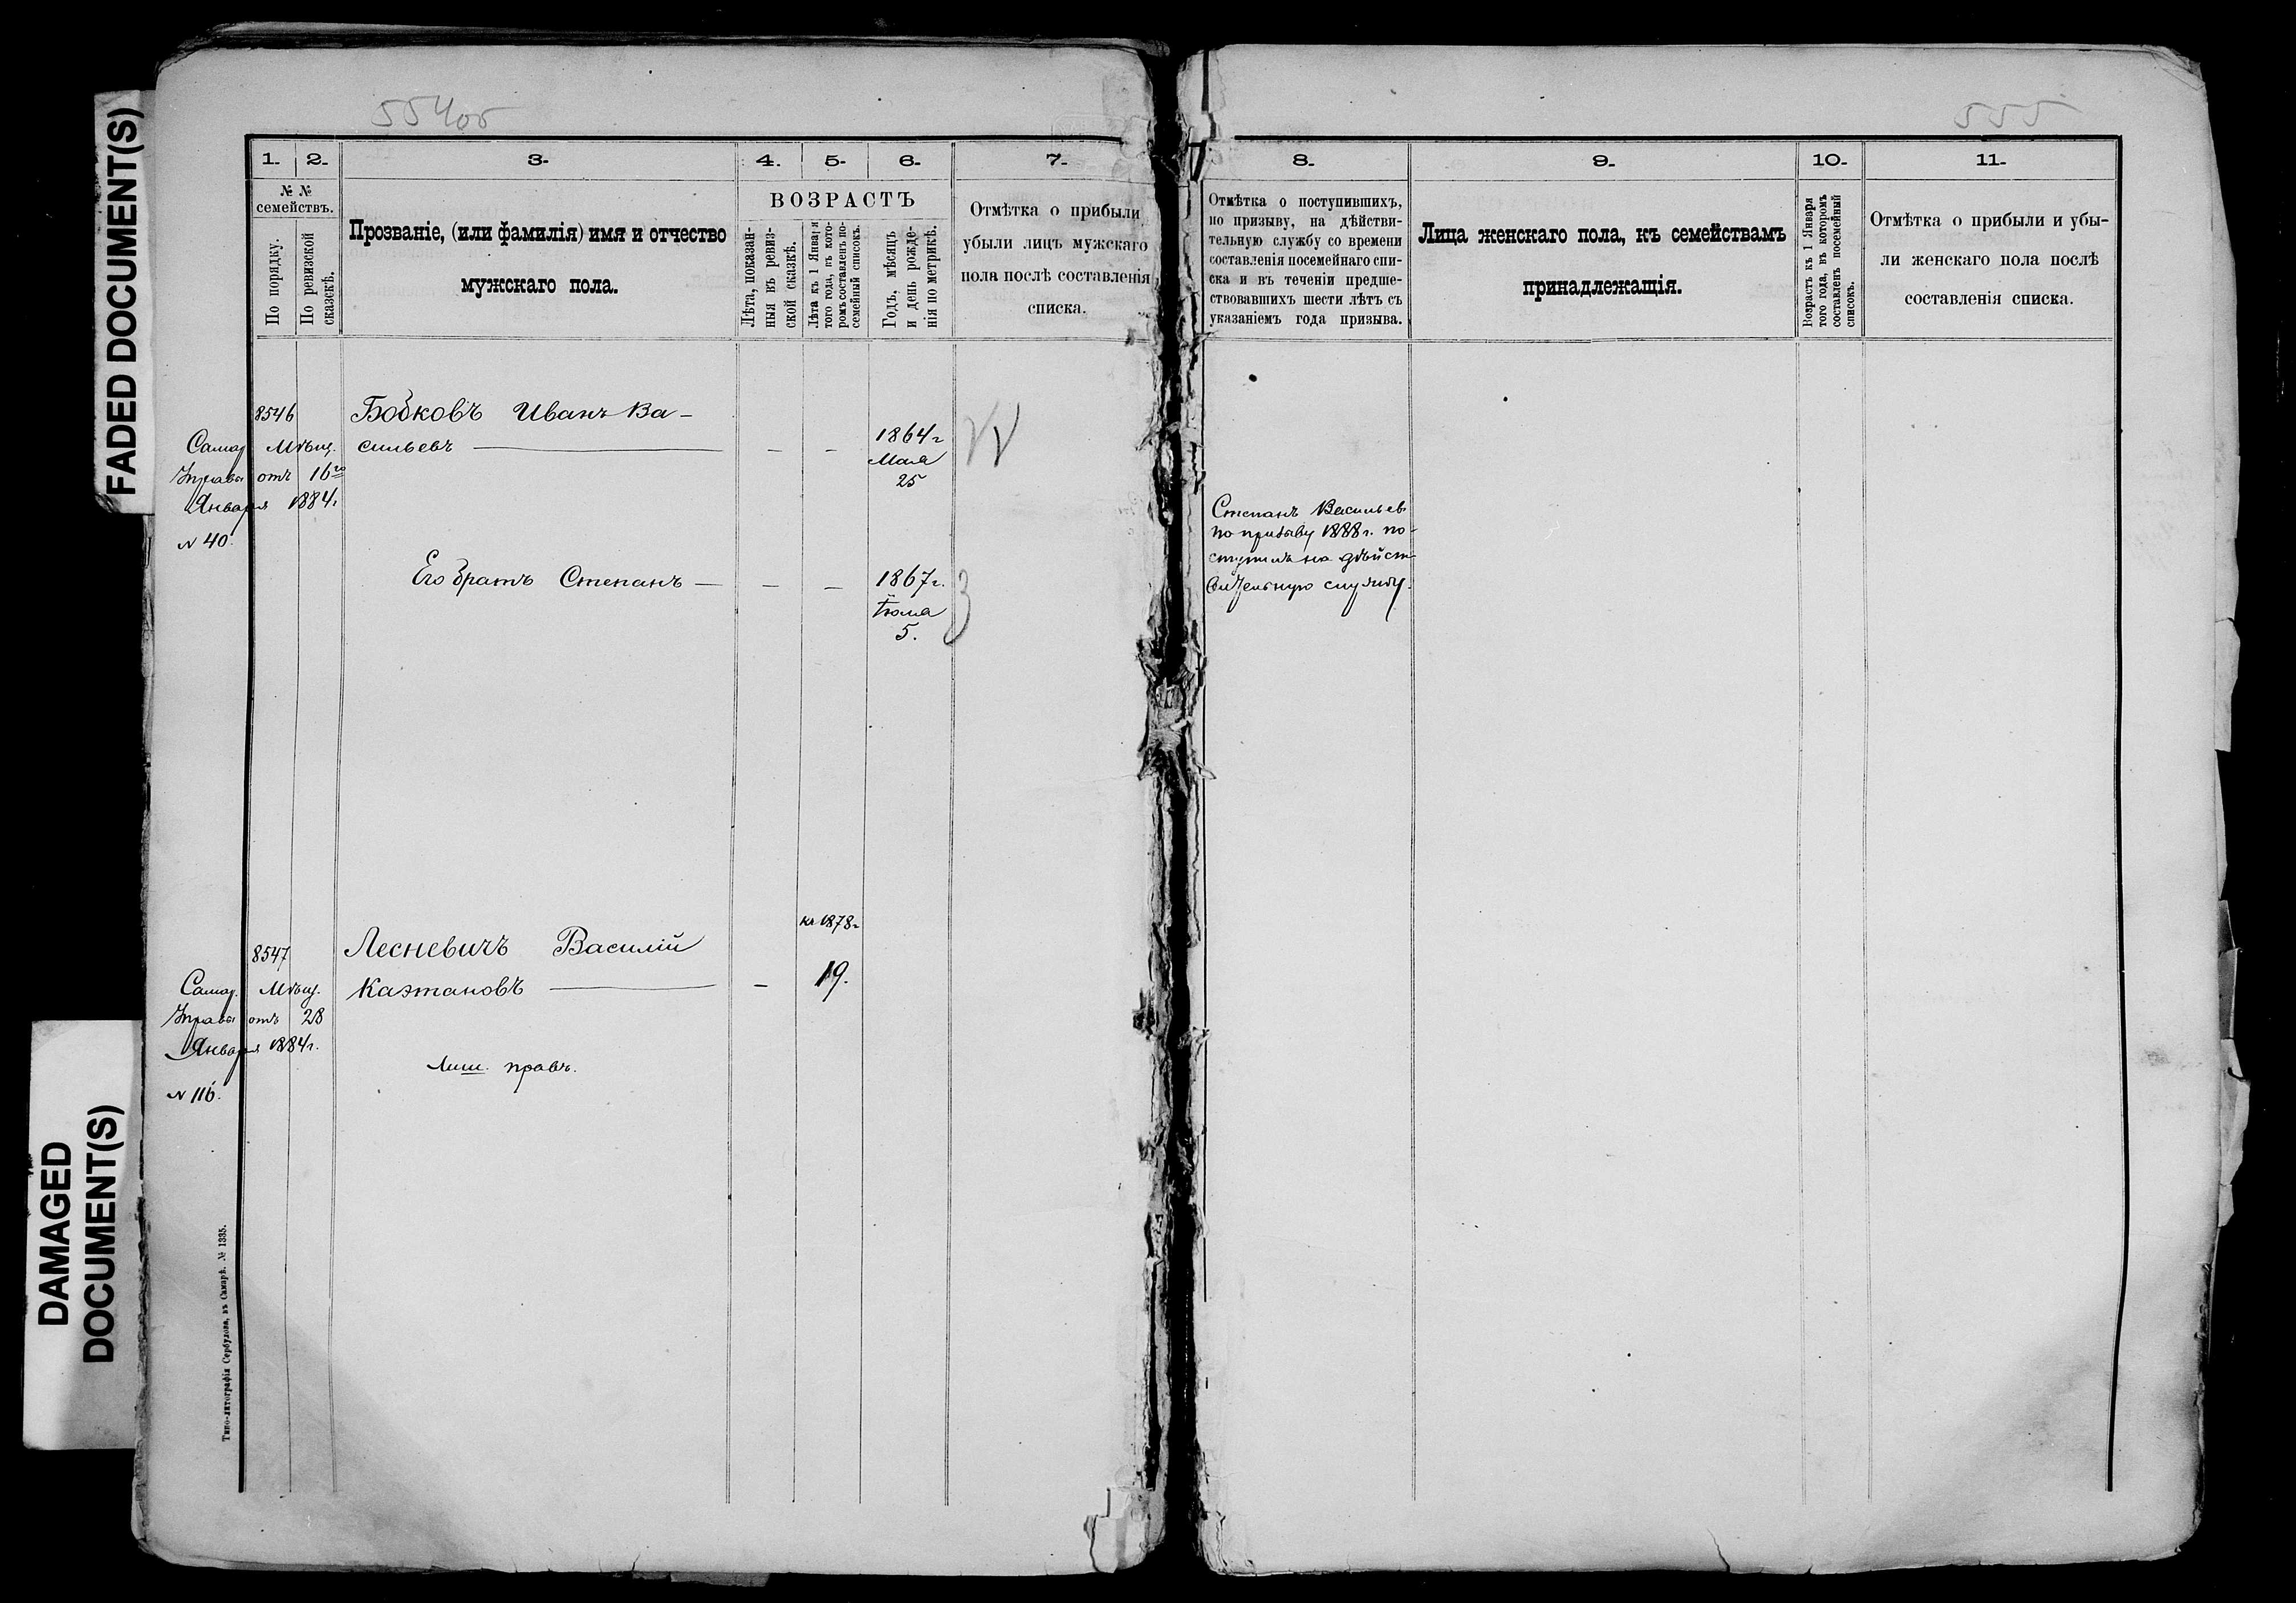 FADED DOCUMENT(S)
DAMAGED
DOCUMENT(S)
554об
555
1. 2. 3. 4. 5. 6. 7.
№ №
семействъ.
По порядку.
По ревизской
сказскѣ.
Прозваніе, (или фамилія) имя и отчество
мужскаго пола.
ВОЗРАСТЪ
Лѣта, показан-
ныя въ ревиз-
ской сказкѣ.
Лѣта къ 1 Января
того года, въ кото-
ромъ составленъ по-
семейный списокъ.
Годъ, мѣсяцъ
и день рожде-
нія по метрикѣ.
Отмѣтка о прибыли
убыли лицъ мужскаго
пола послѣ составленія
списка.
8546 Бобковъ Иванъ Ва-
сильевъ — — — 1864 г
Мая
25
Самар. Мѣщ.
Управы отъ 16го
Января 1884 г
№ 40.
Его братъ Степанъ — — — 1867 г.
Іюля
5.
8547 Лесневичъ Василій
Каэтановъ — —
къ 1878 г
19.
Самар. Мѣщ.
Управы отъ 28
Января 1884 г.
№ 116.
Лиш. правъ.
Типо-литографія Сербулова, въ Самарѣ. № 1335.
8. 9. 10. 11.
Отмѣтка о поступившихъ,
по призыву, на дѣйстви-
тельную службу со времени
составленія посемейнаго спи-
ска и въ теченіи предше-
ствовавшихъ шести лѣтъ съ
указаніемъ года призыва.
Лица женскаго пола, къ семействамъ
принадлежащія.
Возрастъ къ 1 Января
того года, въ которомъ
составленъ посемейный
списокъ.
Отмѣтка о прибыли и убы-
ли женскаго пола послѣ
составленія списка.
Степанъ Васильев
по призыву 1888 г. по-
ступилъ на дѣйст-
вительную службу.